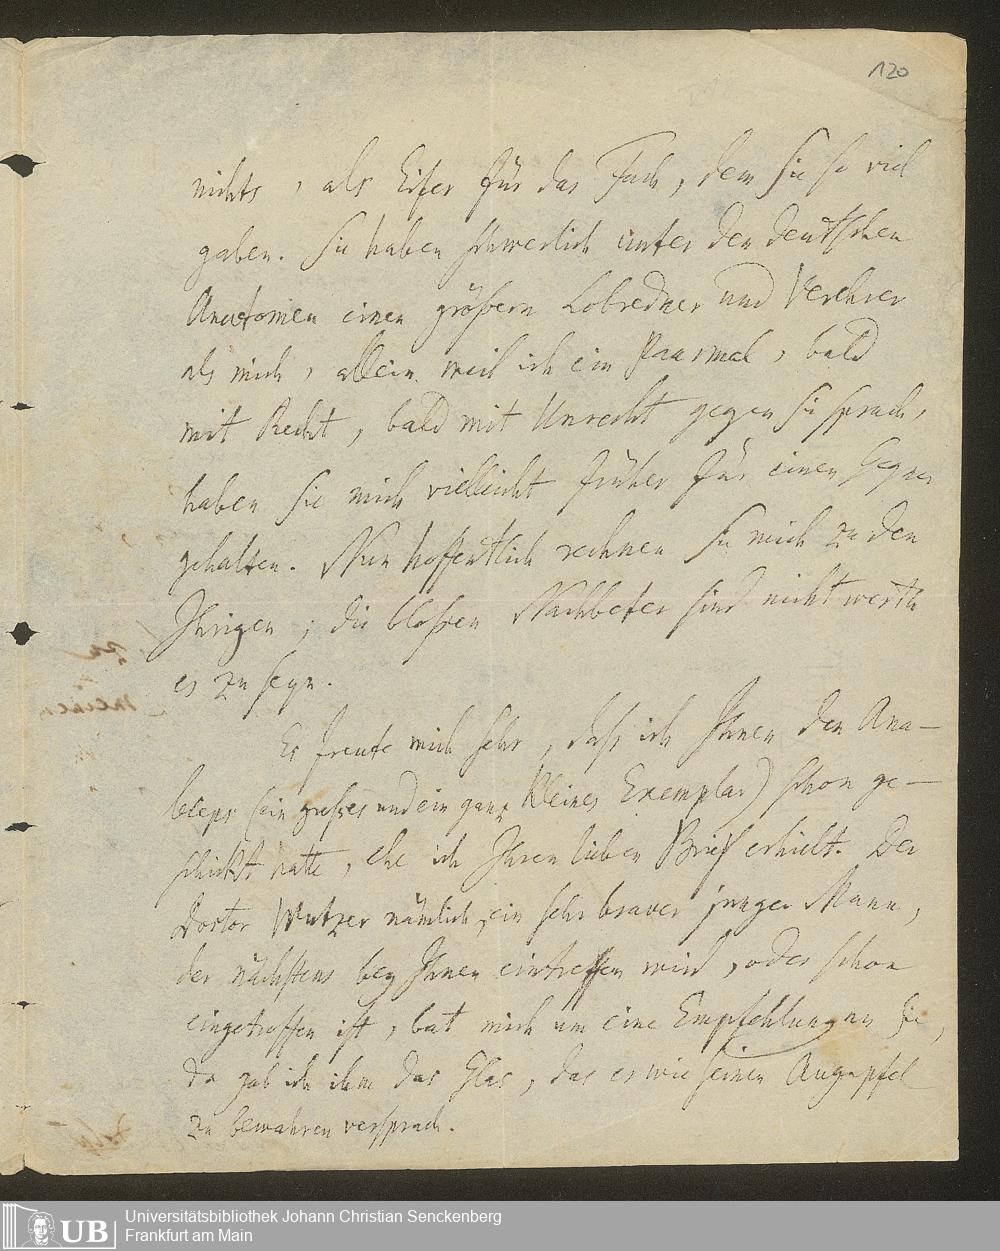 120
nichts, als Eifer für das Fach, dem Sie so viel
gaben. Sie haben schwerlich unter den deutschen
Anatomen einen größern Lobredner und Verehrer
als mich, allein weil ich ein Paarmal, bald
mit Recht, bald mit Unrecht gegen Sie sprach,
haben Sie mich vielleicht früher für einen Gegner
gehalten. Nun hoffentlich rechnen Sie mich zu den
Ihrigen; die bloßen Nachbeter sind nicht werth
es zu seyn.
Es freute mich sehr, daß ich Ihnen den Ana-
bleps (ein großes und ein ganz kleines Exemplar) schon ge-
schickt hatte, ehe ich Ihren lieben Brief erhielt. Der
Doctor Wutzer nämlich, ein sehr braver junger Mann,
der nächstens bey Ihnen eintreffen wird, oder schon
eingetroffen ist, bat mich um eine Empfehlung an Sie,
da gab ich ihm das Glas, das er wie seinen Augapfel
zu bewahren versprach.
UB
Universitätsbibliothek Johann Christian Senckenberg
Frankfurt am Main